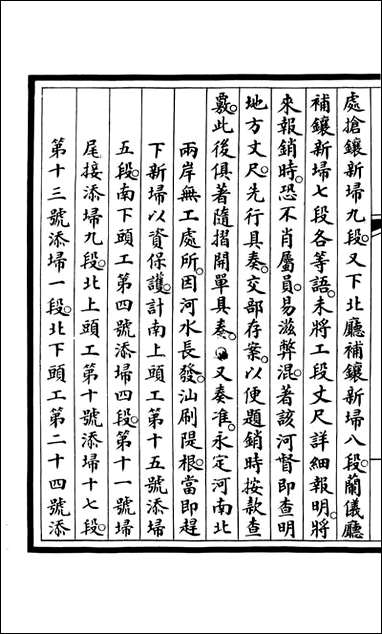 處搶鑲新埽九段。又下北廳補鑲新埽八段。蘭儀廳
補鑲新埽七段各等語。未將工段丈尺詳細報明。將
來報銷時。恐不肖屬員。易滋弊混。著該河督即查明
地方丈尺。先行具奏。交部存案。以便題銷時按款查
覈。此後俱著隨摺開單具奏。○又奏准。永定河南北
兩岸無工處所。因河水長發。汕刷隄根。當即趕
下新埽以資保護。計南上頭工第十五號添埽
五段。南下頭工第四號添埽四段。第十一號埽
尾接添埽九段。北上頭工第十號添埽十七段。
第十三號添埽一段。北下頭工第二十四號添